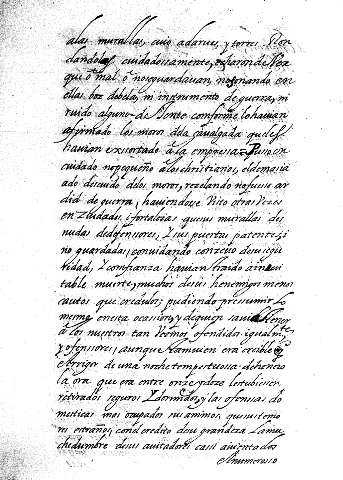 alas murallas, cuio adarues, y torres Ron
dandolas cuidadosamente, reparon de Ver
que ô mal ô no se guardauan, no sonando en
ellas boz de bela, ni instrumento de guerra, ni
ruido alguno de Jente conforme lo hauian
afirmado los moros dela caualgada que les
hauian exsortado â la empresa
cuidado no pequeño a los christianos, el demasia
ado descuido delos moros, rezelando no fuese ar
did de guerra, hauiendose Visto otras Vezes
en Ziudades, i fortalezas que sus murallas des
nudas de defensores, Y sus puertas patentes, i
no guardadas, conuidando con zeuo de su segu
ridad, Y confianza hauian traido a ineui
table muerte, muchos de sus henemigos menos
cautos que credulos; pudiendo presumir lo
mesmo en esta ocassion, y de quien sauia
â los nuestros tan Vezinos ofendidos igualmte,
y ofensores, aunque tamuien era creible q
el rigor de una noche tempestuosa de henero
la ora que era entre onze y doze los tubiesen
retirados seguros Y dormidos, y las ofensas do
mesticas mas ocupados sus animos, que su temo
ni estraños, con el credito de su grandeza La mu
chedumbre de sus auitadores casi auentados
Su numeroso